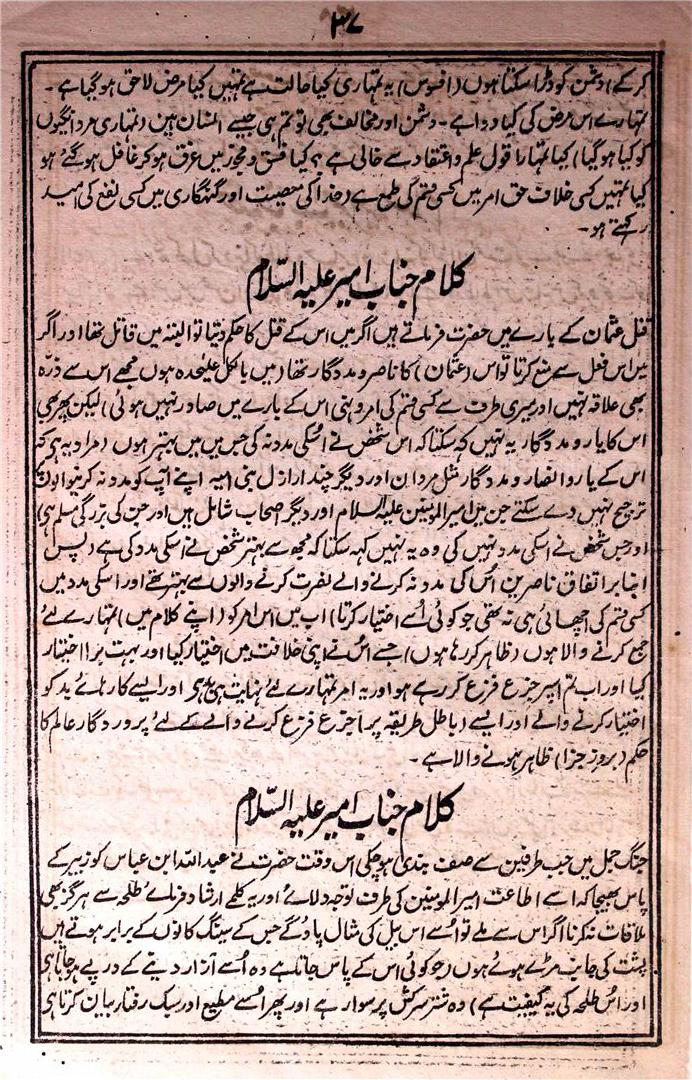 ۳۷
کر کے) دشمن کو ڈرا سکتا ہوں (افسوس) یہ تمہاری کیا حالت ہے تمہیں کیا مرض لاحق ہو گیا ہے۔
تمہارے اس مرض کی کیا دوا ہے۔ دشمن اور مخالف بھی تو تم ہی جیسے انسان ہین (تمہاری مردانگیوں
کو کیا ہو گیا) کیا تمہارا قول علم و اعتقاد سے خالی ہے؟ کیا فسق و فجور میں غرق ہو کر غافل ہو گئے ہو
کیا تمہیں کسی خلاف حق امر میں کسی قسم کی طمع ہے (خدا کی معصیت اور گنہگاری میں کسی نفع کی امید
رکھتے ہو۔
کلام جناب امیر علیہ السّلام
قتل عثمان کے بارے میں حضرت فرماتے ہیں اگر میں اس کے قتل کا حکم دیتا تو البتہ میں قاتل تھا اور اگر
میں اس فعل سے منع کرتا تو اس (عثمان) کا ناصر و مددگار تھا (میں بالکل علیٰحدہ ہوں مجھے اس سے ذرّہ
بھی علاقہ نہیں اور میری طرف سے کسی قسم کی امر و نہی اس کے بارے میں صادر نہیں ہوئی) لیکن پھر بھی
اس کا یار و مددگار یہ نہیں کہہ سکتا کہ اس شخص نے اسکی مدد نہ کی جس میں میں بہتر ہوں (مراد یہ ہے کہ
اس کے یار و انصار و مددگار مثل مردان اور دیگر چند اراذل بنی امیہ اپنے آپ کو مدد نہ کرنیوالوں
ترجیح نہیں دے سکتے جن میں امیر المومنین علیہ السلام اور دیگر اصحاب شامل ہیں اور جن کی بزرگی مسلم ہی)
اور جس شخص نے اسکی مدد نہیں کی وہ یہ نہیں کہہ سکتا کہ مجھ سے بہتر شخص نے اسکی مدد کی ہے (پس
بنا بر اتفاق ناصرین اُس کی مدد نہ کرنے والے نصرت کرنے والوں سے بہتر تھے اور اسکی مدد میں
کسی قسم کی اچھائی ہی نہ تھی جو کوئی اُسے اختیار کرتا) اب میں اس امر کو (اپنے کلام میں) تمہارے لئے
جمع کرنے والا ہوں (ظاہر کر رہا ہوں) جسے اُس نے اپنی خلافت میں اختیار کیا اور بہت برا اختیار
کیا اور اب تم اسپر جزع فزع کر رہے ہو اور یہ امر تمہارے لئے نہایت ہی بد ہی اور ایسے کارہائے بد کو
اختیار کرنے والے اور ایسے (باطل طریقہ پر) جزع فزع کرنے والے کے لئے پروردگار عالم کا
حکم (بروز جزا) ظاہر ہونے والا ہے۔
کلام جناب امیر علیہ السّلام
جنگ جمل میں جب طرفین سے صف بندی ہو چکی اس وقت حضرت نے عبد اللہ ابن عباس کو زبیر کے
پاس بھیجا کہ اسے اطاعت امیر المومنین کی طرف توجہ دلائے اور یہ کلمے ارشاد فرمائے طلحہ سے ہرگز بھی
ملاقات نہ کرنا اگر اس سے ملے تو اُسے اس بیل کی مثال پاؤ گے جس کے سینگ کانوں کے برابر ہوتے ہیں
پشت کی جانب مڑے ہوئے ہوں (جو کوئی اس کے پاس جاتا ہے وہ اُسے آزار دینے کے درپے ہو جاتا ہی
اور اس طلحہ کی یہ کیفیت ہے) وہ شتر سرکش پر سوار ہے اور پھر اُسے مطیع اور سبک رفتار بیان کرتا ہی